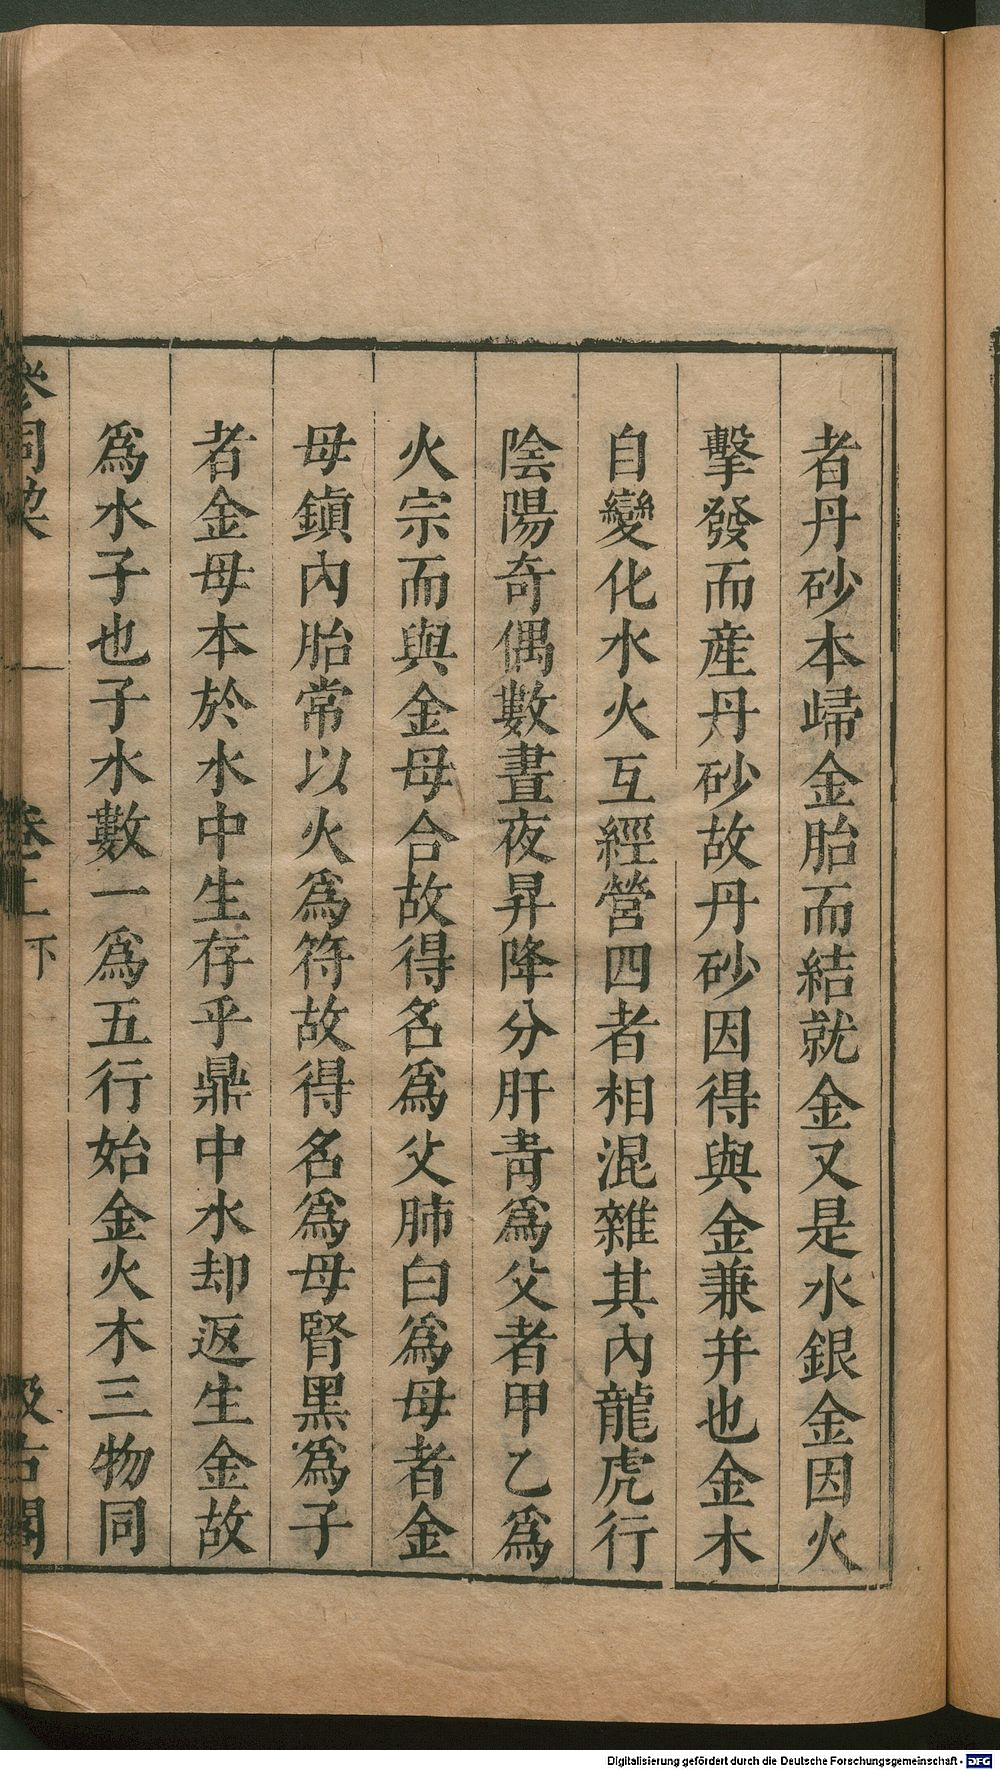 者丹砂本歸金胎而結就金又是水銀金因火
擊發而產丹砂故丹砂因得與金兼并也金木
自變化水火互經營四者相混雜其內龍虎行
陰陽奇偶數晝夜昇降分肝青為父者甲乙為
火宗而與金母合故得名為父肺白為母者金
母鎮內胎常以火為符故得名為母腎黑為子
者金母本於水中生存乎鼎中水却返生金故
為水子也子水數一為五行始金火木三物同
參同 卷上下 汲古閣
Digitalisierung gefördert durch die Deutsche Forschungsgemeinschaft - DFG